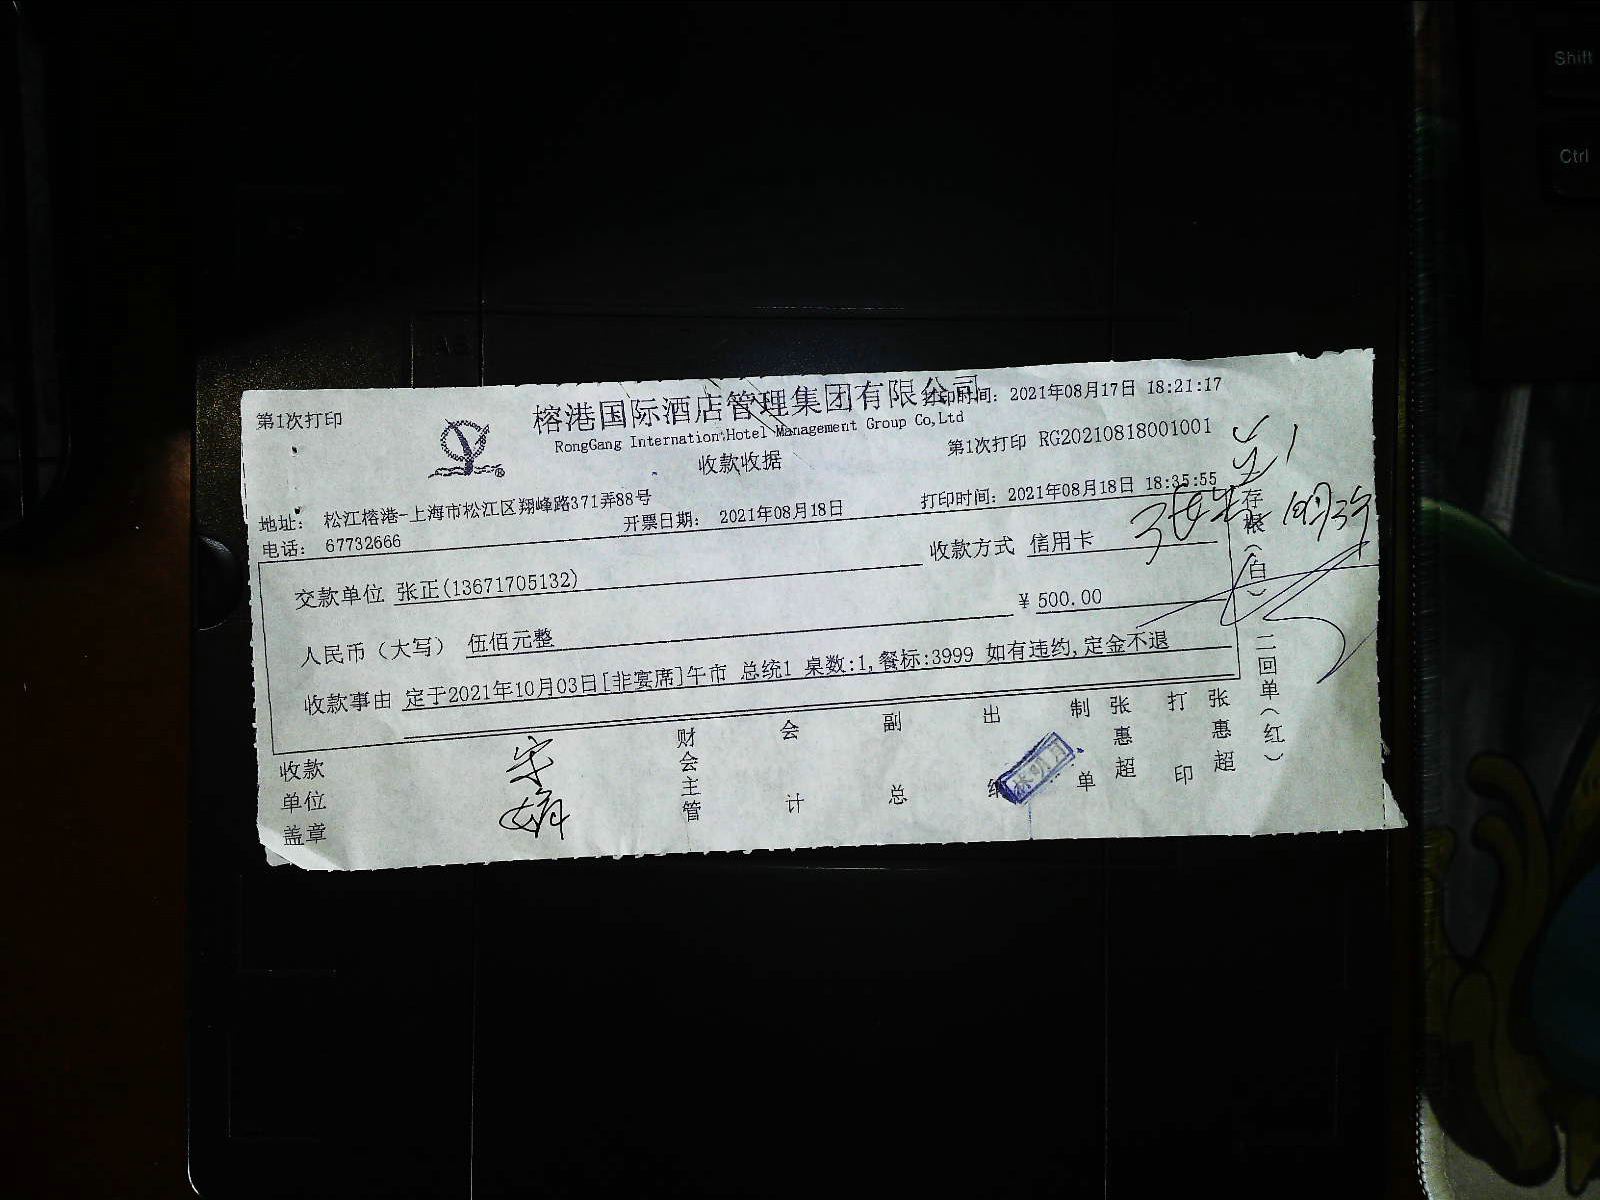 Shift
Ctrl
第1次打印
榕港国际酒店管理集团有限公司
打印时间: 2021年08月17日 18:21:17
RongGang Internation Hotel Management Group Co,Ltd
第1次打印 RG20210818001001
收款收据
地址: 松江榕港-上海市松江区翔峰路371弄88号
开票日期: 2021年08月18日
打印时间: 2021年08月18日 18:35:55
电话: 67732666
交款单位 张正(13671705132)
收款方式 信用卡
人民币（大写） 伍佰元整
¥ 500.00
收款事由 定于2021年10月03日[非宴席]午市 总统1 桌数:1,餐标:3999 如有违约,定金不退
收款单位盖章
财会主管
会计
副总
出纳
制单
张惠超
打印
张惠超
存根(白)
二回单(红)